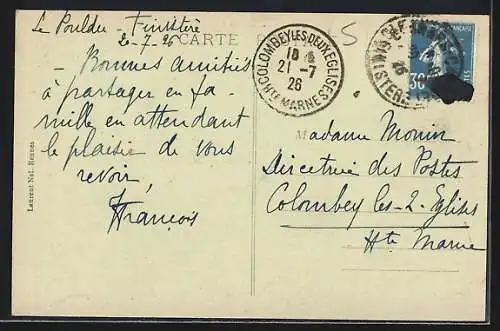 Le Pouldu - Finistère
2-7-26
CARTE
COLOMBEY-LES-DEUX-EGLISES
10
21 -7
26
Hte MARNE
FINISTERE
26
30
- Bonnes amitiés
à partager en fa-
mille en attendant
le plaisir de vous
revoir,
François
Madame Monin
Directrice des Postes
Colombey les-2-Eglises
Hte Marne
Laurent Nel. Rennes